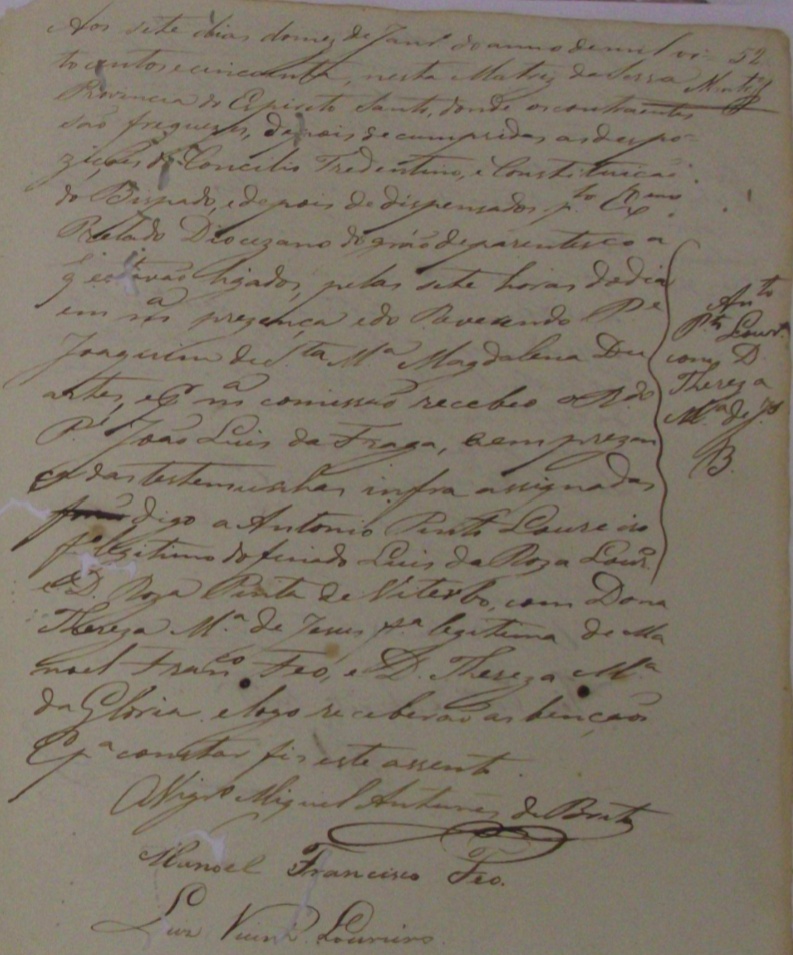 Aos sete dias do mez de Janrº do anno de mil oi- 52
to centos e cincoenta, nesta Matriz da Serra
Provincia do Espirito Santo, donde os contraentes
são freguezes, depois de cumpridas as despo-
zições do Concilio Tredentino, e Constituição
do Bispado, e depois de dispensados pºʳ Exmo
Prelado Diocezano do gráo de parentesco a
q̃ estavão ligados, pelas sete horas do dia
em mª prezença e do Reverendo Pe
Joaquim de Sta Mª Magdalena Du
artes, e pʳ mª comissão recebeo o Rdo
Pe João Luis da Fraga, e em prezen
ça das testemunhas infra assignadas
digo a Antonio Pinto Loureiro
fº legitimo do finado Luis da Roza Lourº
e D. Roza Pinta de Viterbo, com Dona
Thereza Mª de Jesus fª legitima de Ma
noel Franco Feo, e D. Thereza Mª
da Gloria e logo receberão as bençãos
E pª constar fis este assento.
O Vigrº Miguel Antunes de Brito
Manoel Francisco Feo.
Luis Loureiro
Anto
Pto Lourº
com D.
Thereza
Mª de Js
B.